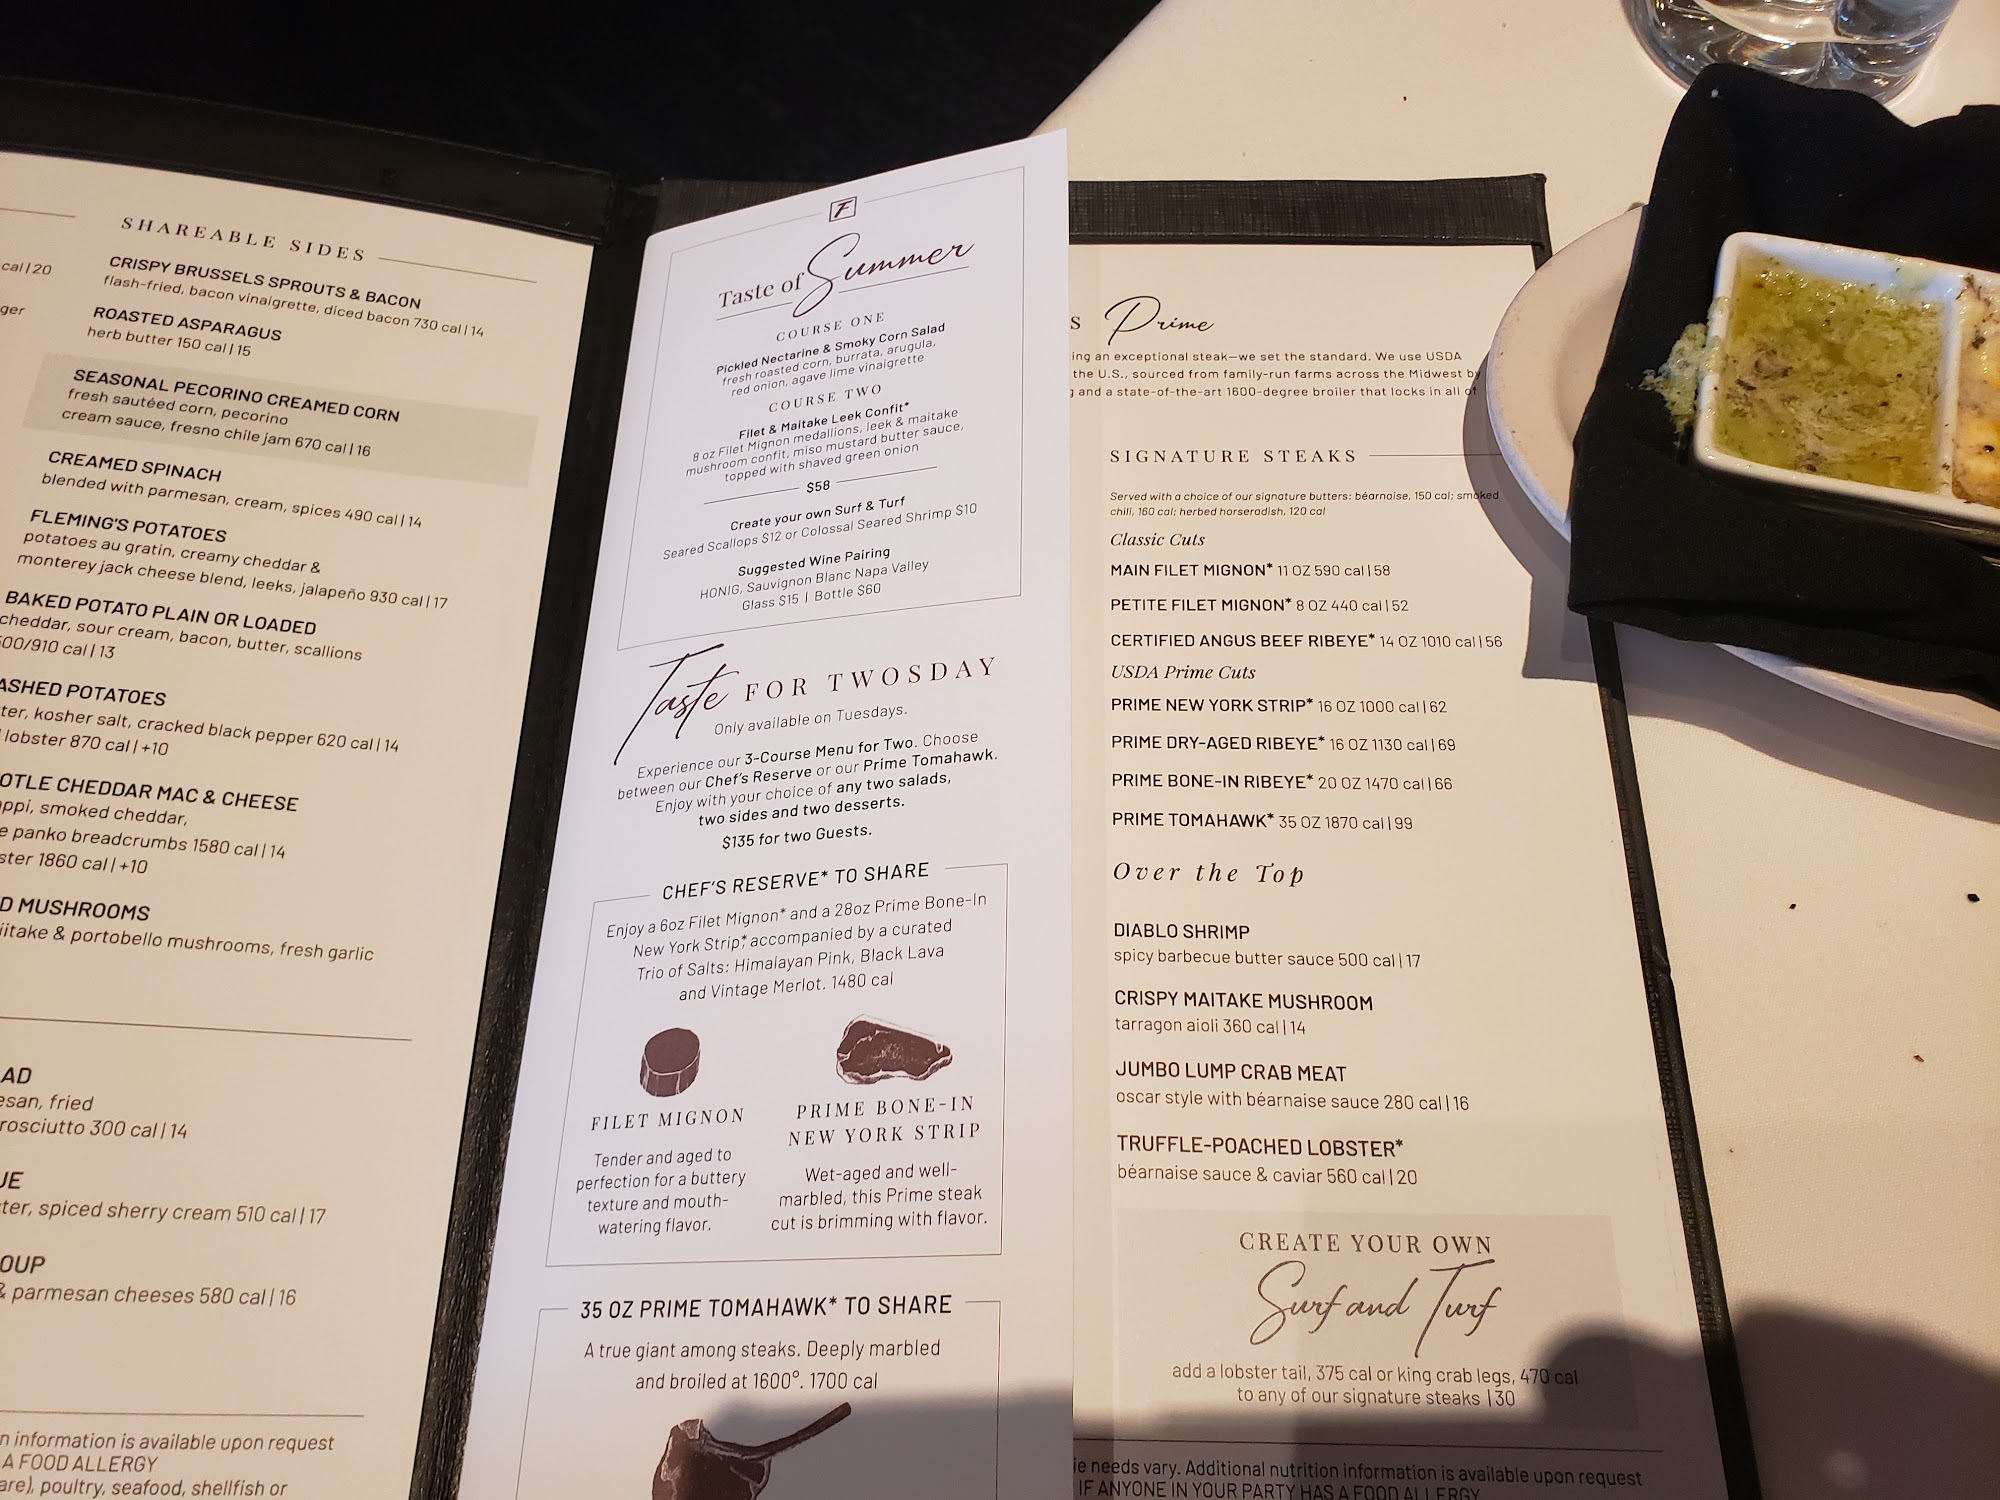 SHAREABLE SIDES
cal | 20
CRISPY BRUSSELS SPROUTS & BACON
flash-fried, bacon vinaigrette, diced bacon 730 cal | 14
ROASTED ASPARAGUS
herb butter 150 cal | 15
SEASONAL PECORINO CREAMED CORN
fresh sautéed corn, pecorino
cream sauce, fresno chile jam 670 cal | 16
CREAMED SPINACH
blended with parmesan, cream, spices 490 cal | 14
FLEMING'S POTATOES
potatoes au gratin, creamy cheddar &
monterey jack cheese blend, leeks, jalapeño 930 cal | 17
BAKED POTATO PLAIN OR LOADED
cheddar, sour cream, bacon, butter, scallions
500/910 cal | 13
ASHED POTATOES
ter, kosher salt, cracked black pepper 620 cal | 14
lobster 870 cal | +10
OTLE CHEDDAR MAC & CHEESE
appi, smoked cheddar,
e panko breadcrumbs 1580 cal | 14
ster 1860 cal | +10
D MUSHROOMS
iitake & portobello mushrooms, fresh garlic
AD
esan, fried
rosciutto 300 cal | 14
UE
ter, spiced sherry cream 510 cal | 17
OUP
& parmesan cheeses 580 cal | 16
n information is available upon request
A FOOD ALLERGY
are), poultry, seafood, shellfish or
F
Taste of Summer
COURSE ONE
Pickled Nectarine & Smoky Corn Salad
fresh roasted corn, burrata, arugula,
red onion, agave lime vinaigrette
COURSE TWO
Filet & Maitake Leek Confit*
8 oz Filet Mignon medallions, leek & maitake
mushroom confit, miso mustard butter sauce,
topped with shaved green onion
$58
Create your own Surf & Turf
Seared Scallops $12 or Colossal Seared Shrimp $10
Suggested Wine Pairing
HONIG, Sauvignon Blanc Napa Valley
Glass $15 | Bottle $60
Taste FOR TWOSDAY
Only available on Tuesdays.
Experience our 3-Course Menu for Two. Choose
between our Chef's Reserve or our Prime Tomahawk.
Enjoy with your choice of any two salads,
two sides and two desserts.
$135 for two Guests.
CHEF'S RESERVE* TO SHARE
Enjoy a 6oz Filet Mignon* and a 28oz Prime Bone-In
New York Strip,* accompanied by a curated
Trio of Salts: Himalayan Pink, Black Lava
and Vintage Merlot. 1480 cal
FILET MIGNON
Tender and aged to
perfection for a buttery
texture and mouth-
watering flavor.
PRIME BONE-IN
NEW YORK STRIP
Wet-aged and well-
marbled, this Prime steak
cut is brimming with flavor.
35 OZ PRIME TOMAHAWK* TO SHARE
A true giant among steaks. Deeply marbled
and broiled at 1600°. 1700 cal
S Prime
ing an exceptional steak—we set the standard. We use USDA
the U.S., sourced from family-run farms across the Midwest by
g and a state-of-the-art 1600-degree broiler that locks in all of
SIGNATURE STEAKS
Served with a choice of our signature butters: béarnaise, 150 cal; smoked
chili, 160 cal; herbed horseradish, 120 cal
Classic Cuts
MAIN FILET MIGNON* 11 OZ 590 cal | 58
PETITE FILET MIGNON* 8 OZ 440 cal | 52
CERTIFIED ANGUS BEEF RIBEYE* 14 OZ 1010 cal | 56
USDA Prime Cuts
PRIME NEW YORK STRIP* 16 OZ 1000 cal | 62
PRIME DRY-AGED RIBEYE* 16 OZ 1130 cal | 69
PRIME BONE-IN RIBEYE* 20 OZ 1470 cal | 66
PRIME TOMAHAWK* 35 OZ 1870 cal | 99
Over the Top
DIABLO SHRIMP
spicy barbecue butter sauce 500 cal | 17
CRISPY MAITAKE MUSHROOM
tarragon aioli 360 cal | 14
JUMBO LUMP CRAB MEAT
oscar style with béarnaise sauce 280 cal | 16
TRUFFLE-POACHED LOBSTER*
béarnaise sauce & caviar 560 cal | 20
CREATE YOUR OWN
Surf and Turf
add a lobster tail, 375 cal or king crab legs, 470 cal
to any of our signature steaks | 30
ie needs vary. Additional nutrition information is available upon request
IF ANYONE IN YOUR PARTY HAS A FOOD ALLERGY